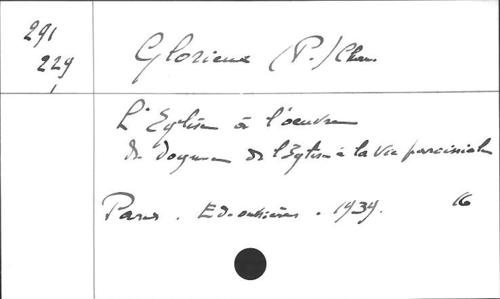 291
229
Glorieux (P.) Chan
L'Eglise à l'oeuvre
du dogme de l'Eglise à la vie paroissiale
Paris. Ed. ouvrières. 1939. 16